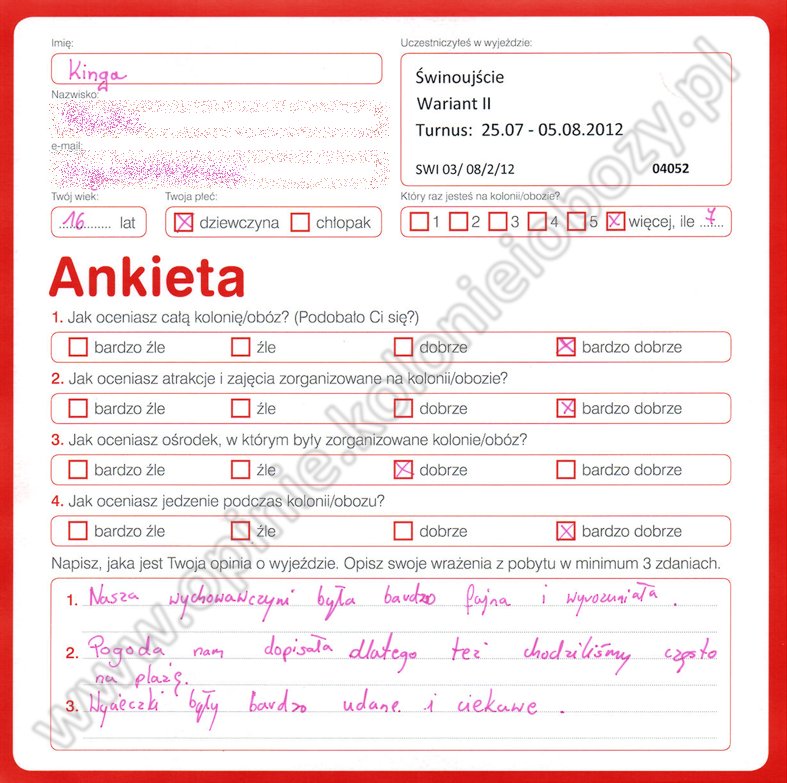 Imię:
Kinga
Uczestniczyłeś w wyjeździe:
Świnoujście
Wariant II
Turnus: 25.07 - 05.08.2012
SWI 03/ 08/2/12 04052
Nazwisko:
e-mail:
Twój wiek:
16 lat
Twoja płeć:
dziewczyna chłopak
Który raz jesteś na kolonii/obozie?
1 2 3 4 5 więcej, ile 7
Ankieta
1. Jak oceniasz całą kolonię/obóz? (Podobało Ci się?)
bardzo źle źle dobrze bardzo dobrze
2. Jak oceniasz atrakcje i zajęcia zorganizowane na kolonii/obozie?
bardzo źle źle dobrze bardzo dobrze
3. Jak oceniasz ośrodek, w którym były zorganizowane kolonie/obóz?
bardzo źle źle dobrze bardzo dobrze
4. Jak oceniasz jedzenie podczas kolonii/obozu?
bardzo źle źle dobrze bardzo dobrze
Napisz, jaka jest Twoja opinia o wyjeździe. Opisz swoje wrażenia z pobytu w minimum 3 zdaniach.
1. Nasza wychowawczyni była bardzo fajna i wyrozumiała.
2. Pogoda nam dopisała dlatego też chodziliśmy często
na plażę.
3. Wycieczki były bardzo udane i ciekawe.
www.opinie.kolonieiobozy.pl